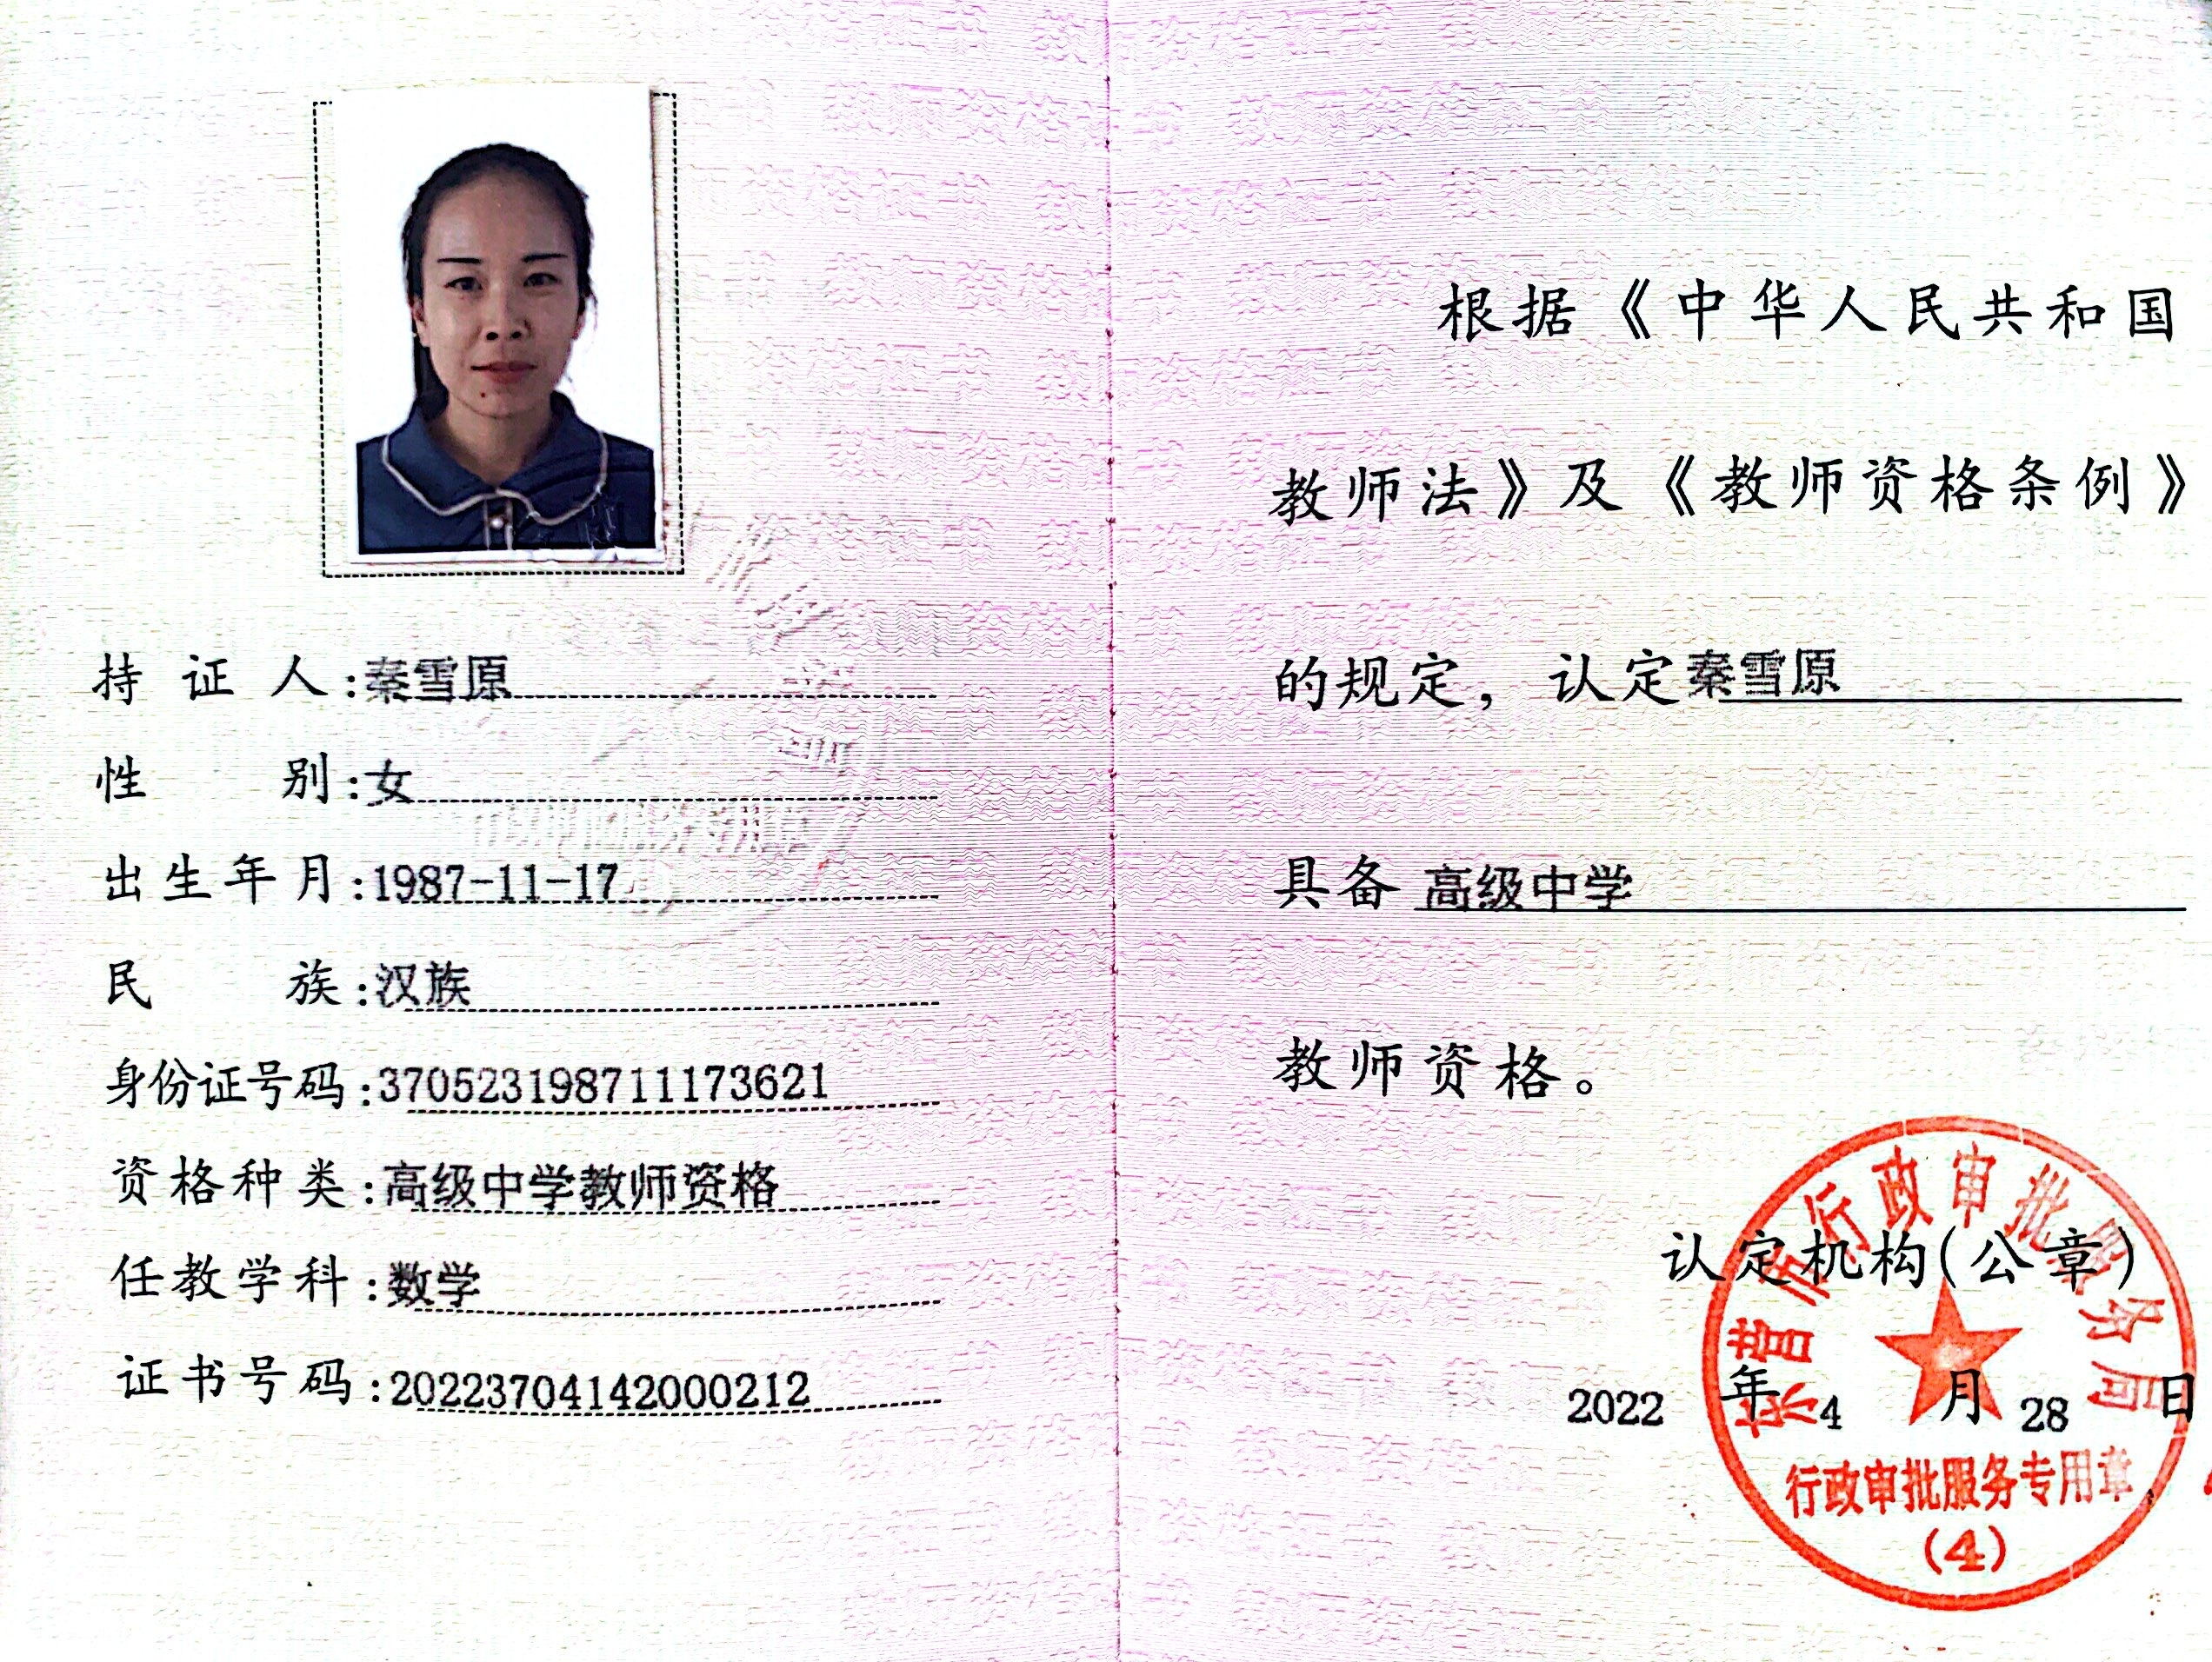 持证人:秦雪原
性别:女
出生年月:1987-11-17
民族:汉族
身份证号码:370523198711173621
资格种类:高级中学教师资格
任教学科:数学
证书号码:20223704142000212
根据《中华人民共和国
教师法》及《教师资格条例》
的规定，认定秦雪原
具备 高级中学
教师资格。
认定机构(公章)
2022 年 4 月 28 日
东营市行政审批服务局
行政审批服务专用章
(4)